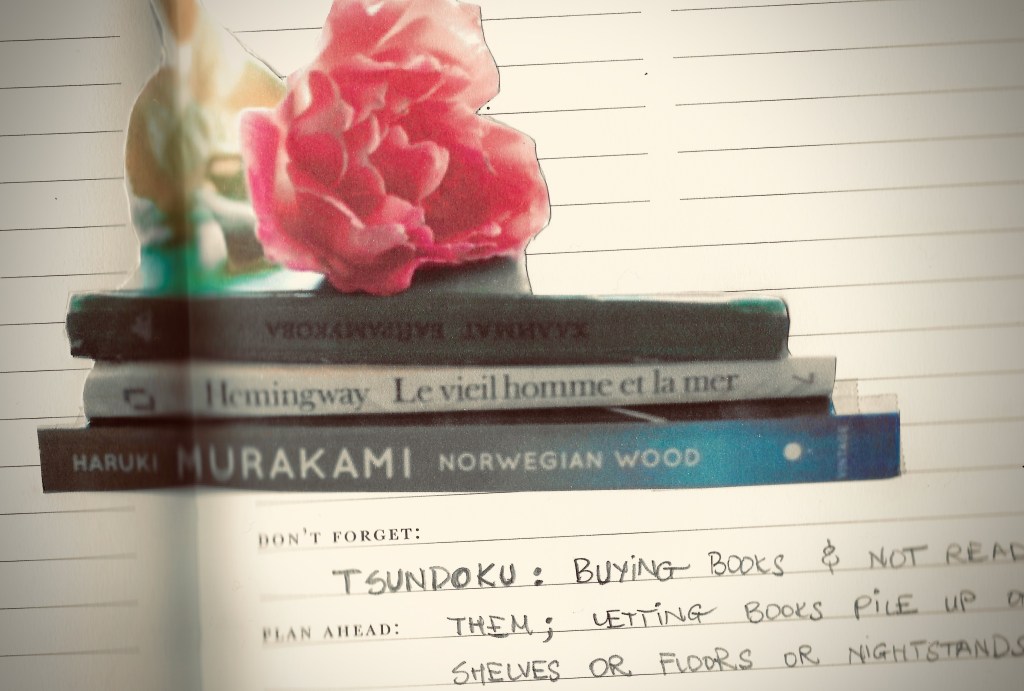 ХАЛИМАТ БАЙРАМУКОВА
Hemingway Le vieil homme et la mer
HARUKI MURAKAMI NORWEGIAN WOOD VINTAGE
DON'T FORGET:
TSUNDOKU : BUYING BOOKS & NOT READ
PLAN AHEAD: THEM; LETTING BOOKS PILE UP
SHELVES OR FLOORS OR NIGHTSTANDS